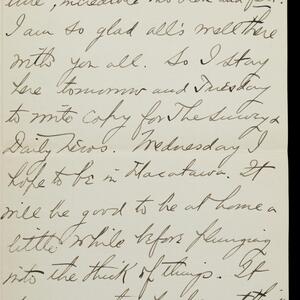 incredible
I am so glad all's well there
with you all. So I stay
here tomorrow and Tuesday
to write copy for The Survey &
Daily News. Wednesday I
hope to be in Macatawa. It
will be good to be at home a
little while before plunging
into the thick of things. It